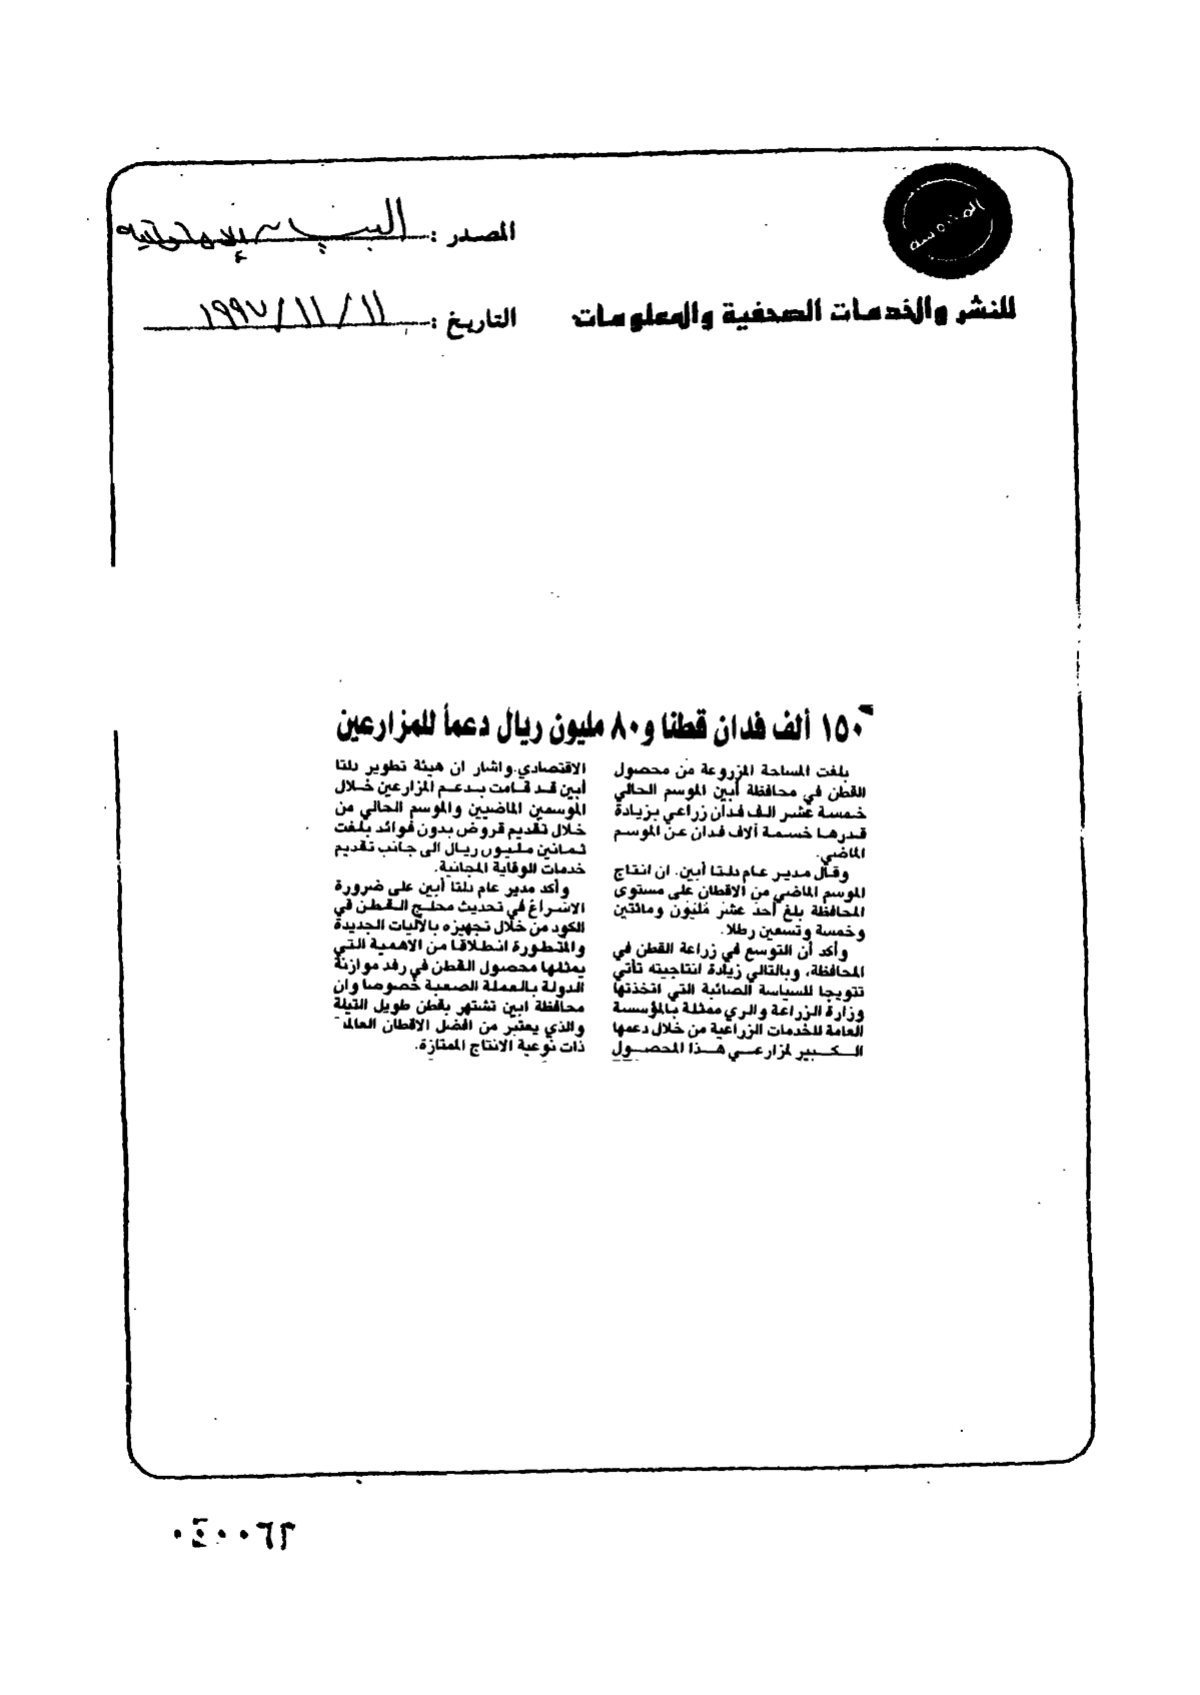 المحروسة
للنشر والخدمات الصحفية والمعلومات
المصدر : البيان الإماراتية
التاريخ : ١١/١١/١٩٩٧
١٥٠ ألف فدان قطنا و٨٠ مليون ريال دعماً للمزارعين
بلغت المساحة المزروعة من محصول
القطن في محافظة أبين الموسم الحالي
خمسة عشر الف فدان زراعي بزيادة
قدرها خسمة آلاف فدان عن الموسم
الماضي.
وقال مدير عام دلتا أبين. ان انتاج
الموسم الماضي من الاقطان على مستوى
المحافظة بلغ أحد عشر مليون ومائتين
وخمسة وتسعين رطلا.
وأكد أن التوسع في زراعة القطن في
المحافظة، وبالتالي زيادة انتاجيته تأتي
تتويجا للسياسة الصائبة التي اتخذتها
وزارة الزراعة والري ممثلة بالمؤسسة
العامة للخدمات الزراعية من خلال دعمها
الكبير لمزارعي هذا المحصول
الاقتصادي.واشار ان هيئة تطوير دلتا
أبين قد قامت بدعم المزارعين خلال
الموسمين الماضيين والموسم الحالي من
خلال تقديم قروض بدون فوائد بلغت
ثمانين مليون ريال الى جانب تقديم
خدمات الوقاية المجانية.
وأكد مدير عام دلتا أبين على ضرورة
الاسراع في تحديث محلج القطن في
الكود من خلال تجهيزه بالآليات الجديدة
والمتطورة انطلاقا من الاهمية التي
يمثلها محصول القطن في رفد موازنة
الدولة بالعملة الصعبة خصوصا وان
محافظة ابين تشتهر بقطن طويل التيلة
والذي يعتبر من افضل الاقطان
ذات نوعية الانتاج الممتازة.